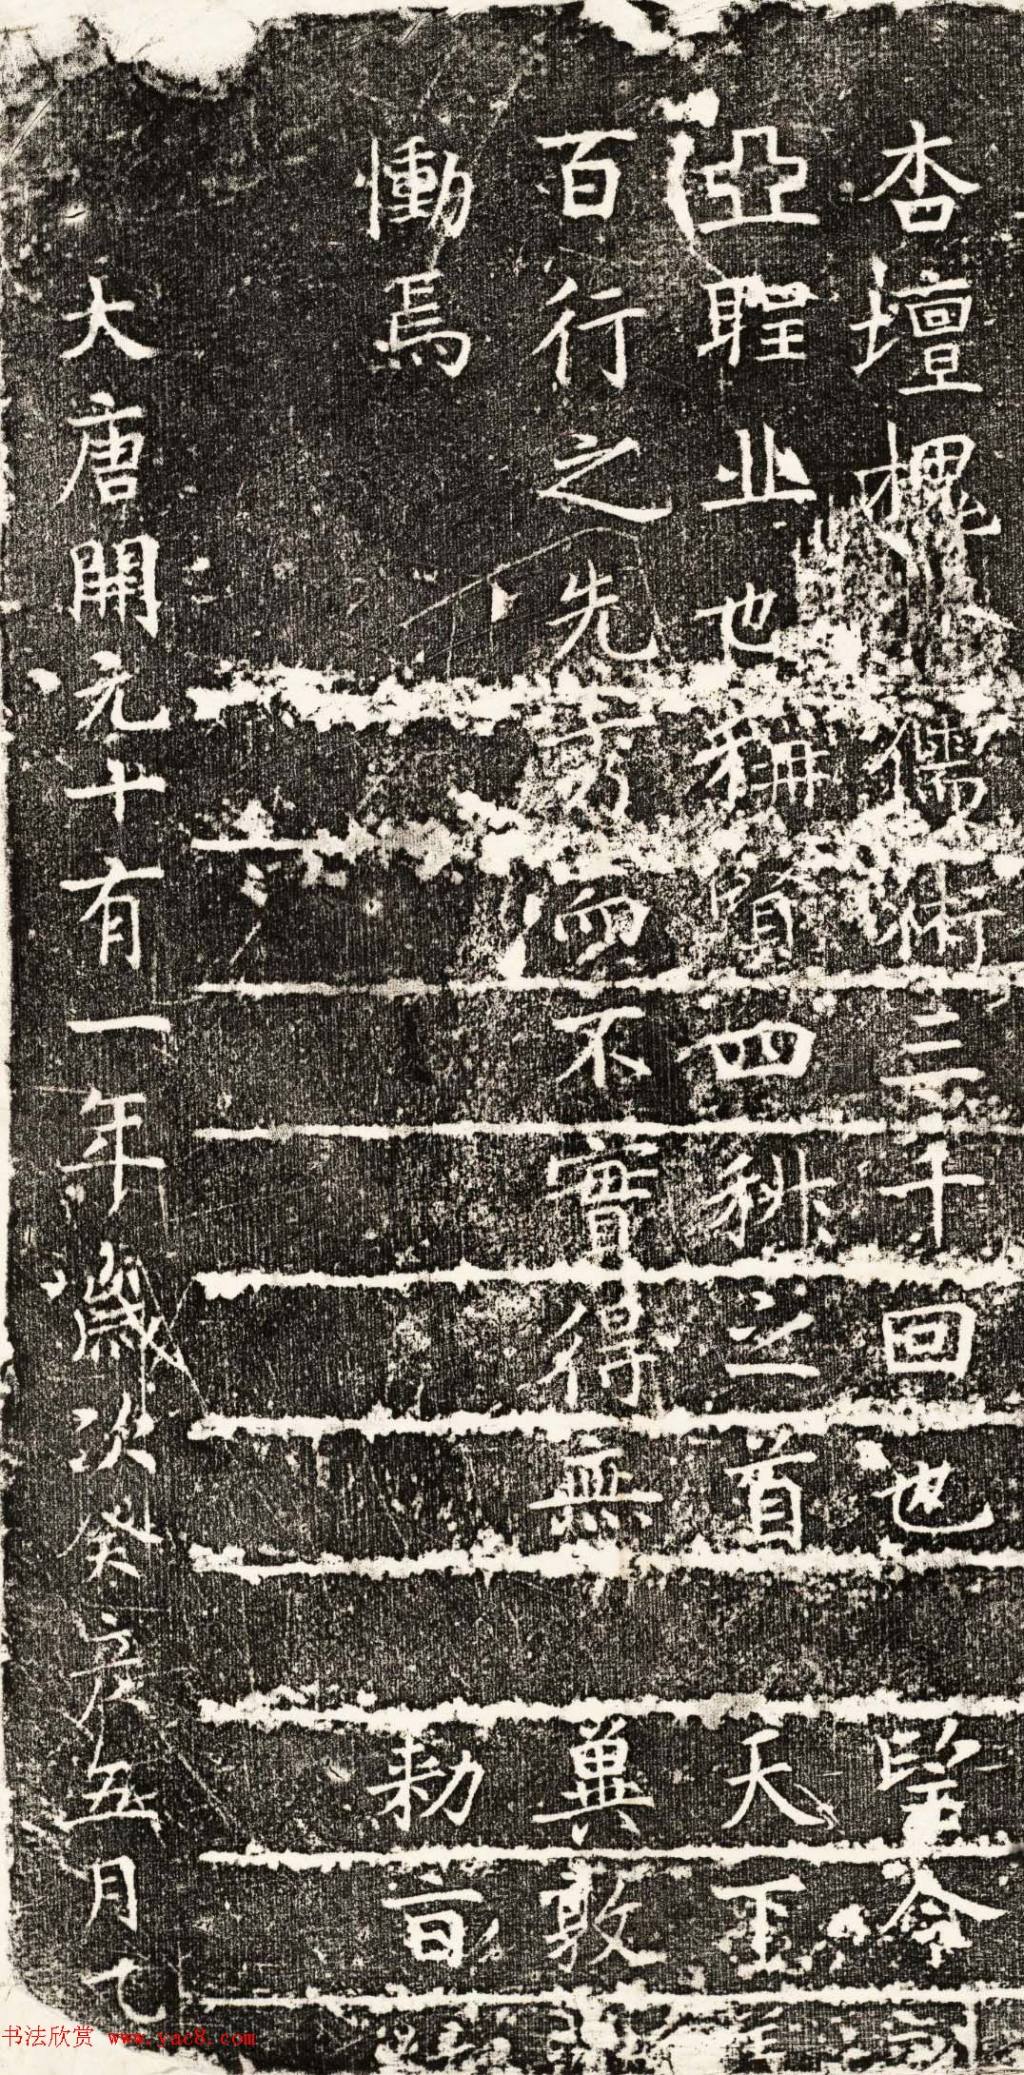 杏壇槐市儒術三千回也
亞聖丘也稱賢四科之首
百行之先秀而不實得無
慟焉
大唐開元十有一年歲次癸亥五月乙
天王
敦
勅旨
书法欣赏 www.yac8.com